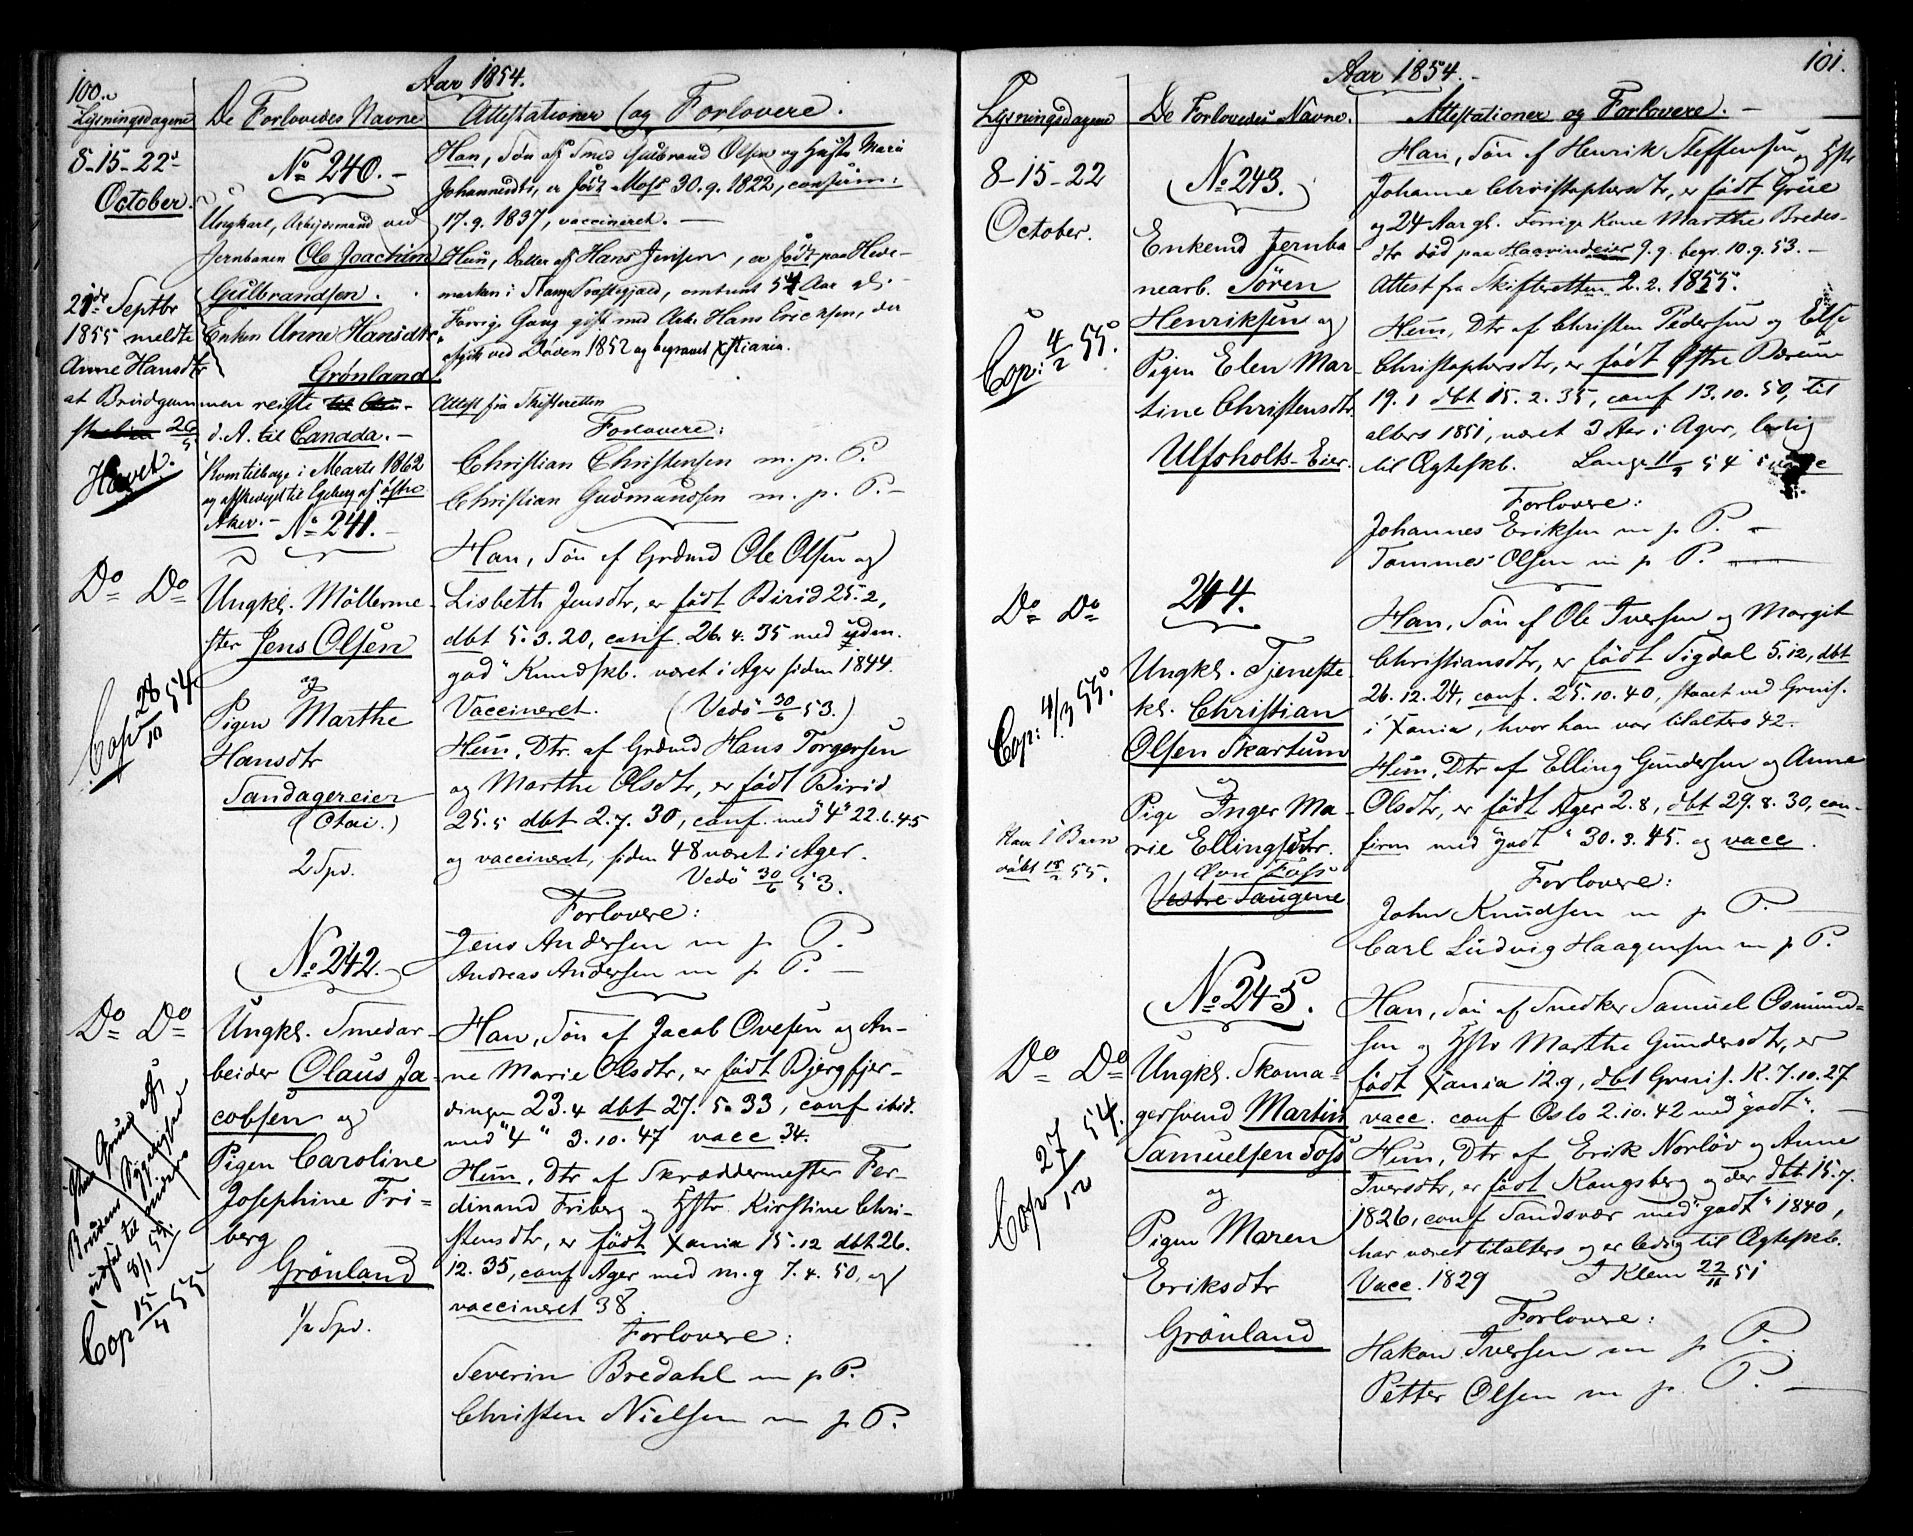 100.
Aar 1854.
Lysningsdagene
De Forlovedes Navne
Attestationer og Forlovere.
8-15-22
October.
No 240.
Ungkarl, Arbeidsmand ved
Jernbanen Ole Joachim
Gulbrandsen.
Enken Anne Hansdtr
Grønland
21de Septbr
1855 meldte
Anne Hansdtr
at Brudgummen reiste
d. A. til Canada.
Hævet.
Kom tilbage i Marts 1862
Aker.
Han, Søn af Smed Gulbrand Olsen og Hustr Mari
Johannesdtr, er født Moss 30.9.1822, confirm:
17.9.1837, vaccineret.
Hun, Datter af Hans Jensen, er født paa Hede-
marken i Stange Præstegjæld, omtrent 54 Aar
Forrige Gang gift med Arb. Hans Ericksen, der
afgik ved Døden 1852 og begravet Xstiania.
Attest fra Skifteretten
Forlovere:
Christian Christensen m. p. P.
Christian Gudmundsen m. p. P.
No 241.
Do Do
Ungkl. Møllerme-
ster Jens Olsen
og
Pigen Marthe
Hansdtr
Sandagereier
2 Spd.
Cop 28/10 54
Han, Søn af Grdmd Ole Olsen og
Lisbeth Jensdtr, er født Birid 25.2,
dbt 5.3.20, conf. 26.4.35 med
god Kundskb. været i Ager siden 1844.
Vaccineret. (Vedø 30/6 53.)
Hun, Dtr. af Grdmd Hans Torgersen
og Marthe Olsdtr, er født Birid
25.5 dbt 2.7.30, conf. med "4" 22.6.45
og vaccineret, siden 48 været i Ager.
Vedø 30/6 53.
Forlovere:
Jens Andersen m p P.
Andreas Andersen m p P.
No 242.
Do Do
Ungkl. Smedar-
beider Olaus Ja-
cobsen og
Pigen Caroline
Josephine Fri-
berg
Grønland
1/2 Spd.
Cop 15/4 55
Han, Søn af Jacob Ovesen og An-
ne Marie Olsdtr, er født Bjergfjer-
dingen 23.4 dbt 27.5.33, conf ibid.
med "4" 3.10.47 vacc 34.
Hun, Dtr af Skræddermester Fer-
dinand Friberg og Hstr. Kirstine Chri-
stensdtr, er født Xania 15.12 dbt 26.
12.35, conf Ager med m.g 7.4.50, og
vaccineret 38.
Forlovere:
Severin Bredahl m p P.
Christen Nielsen m p P.
101.
Aar 1854.
Lysningsdagene
De Forlovedes Navne.
Attestationer og Forlovere.
8-15-22
October.
No 243.
Enkemd Jernba
nearb. Søren
Henriksen og
Pigen Elen Mar-
tine Christensdtr.
Ulfsholts-Eier.
Cop: 4/2 55.
Han, Søn af Henrik Steffensen og Hstr
Johanne Christophersdtr, er født Grue
og 24 Aar gl. Forrige Kone Marthe Bredes-
dtr død paa Haavindeier 9.9. begr. 10.9.53.
Attest fra Skifteretten 2.2.1855.
Hun, Dtr af Christen Pedersen og Else
Christophersdtr, er født Østre Bærum
19.1 dbt 15.2.35, conf 13.10.50, til
alters 1851, været 3 Aar i Ager, ledig
til Ægteskb. Lange 11/9 54
Forlovere:
Johannes Eriksen m p P.
Tommes Olsen m p P.
244.
Do Do
Ungkl. Tjeneste-
kl. Christian
Olsen Skartum
og
Pige Inger Ma-
rie Ellingsdtr.
Øvre Foss
Vestre Saugene
Cop: 4/3 55.
Have 1 Barn
døbt 18/2 55.
Han, Søn af Ole Iversen og Margit
Christiansdtr, er født Sigdal 5.12, dbt
26.12.24, conf. 25.10.40, staaet ved Grnis.
i Xania, hvor han var tilalters 42.
Hun, Dtr af Elling Gundersen og Anne
Olsdtr, er født Ager 2.8, dbt 29.8.30, con-
firm med "godt" 30.3.45. og vacc.
Forlovere:
John Knudsen m p P.
Carl Ludvig Haagensen m p P.
No 245.
Do Do
Ungkl. Skoma-
gersvend Martin
Samuelsen Foss
og
Pigen Maren
Eriksdtr
Grønland
Cop 27/12 54.
Han, Søn af Snedker Samuel Osmund-
sen og Hstr Marthe Gundersdtr, er
født Xania 12.9, dbt Grnis. K. 7.10.27
vacc. conf Oslo 2.10.42 med "godt".
Hun, Dtr af Erik Norløv og Anne
Iversdtr, er født Kongsberg og der dbt 15.7.
1826, conf Sandsvær med "godt" 1840,
har været tilalters og er ledig til Ægteskb.
Vacc. 1829 J Klem 22/11 51
Forlovere:
Hakon Iversen m p P.
Petter Olsen m p. P.